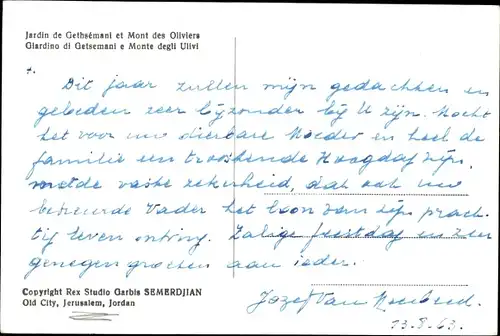 Jardin de Gethsémani et Mont des Oliviers
Giardino di Getsemani e Monte degli Ulivi
+.
Dit jaar zullen mijn gedachten en
gebeden zeer bijzonder bij U zijn. Mocht
het voor uw dierbare Moeder en heel de
familie een troostende Hoogdag zijn,
met de vaste zekerheid, dat ook uw
betreurde Vader het loon van zijn prach-
tig leven ontving. Zalige feestdag en zeer
genegen groeten aan ieder.
Copyright Rex Studio Garbis SEMERDJIAN
Old City, Jerusalem, Jordan
Jozef Van
13.3.63.